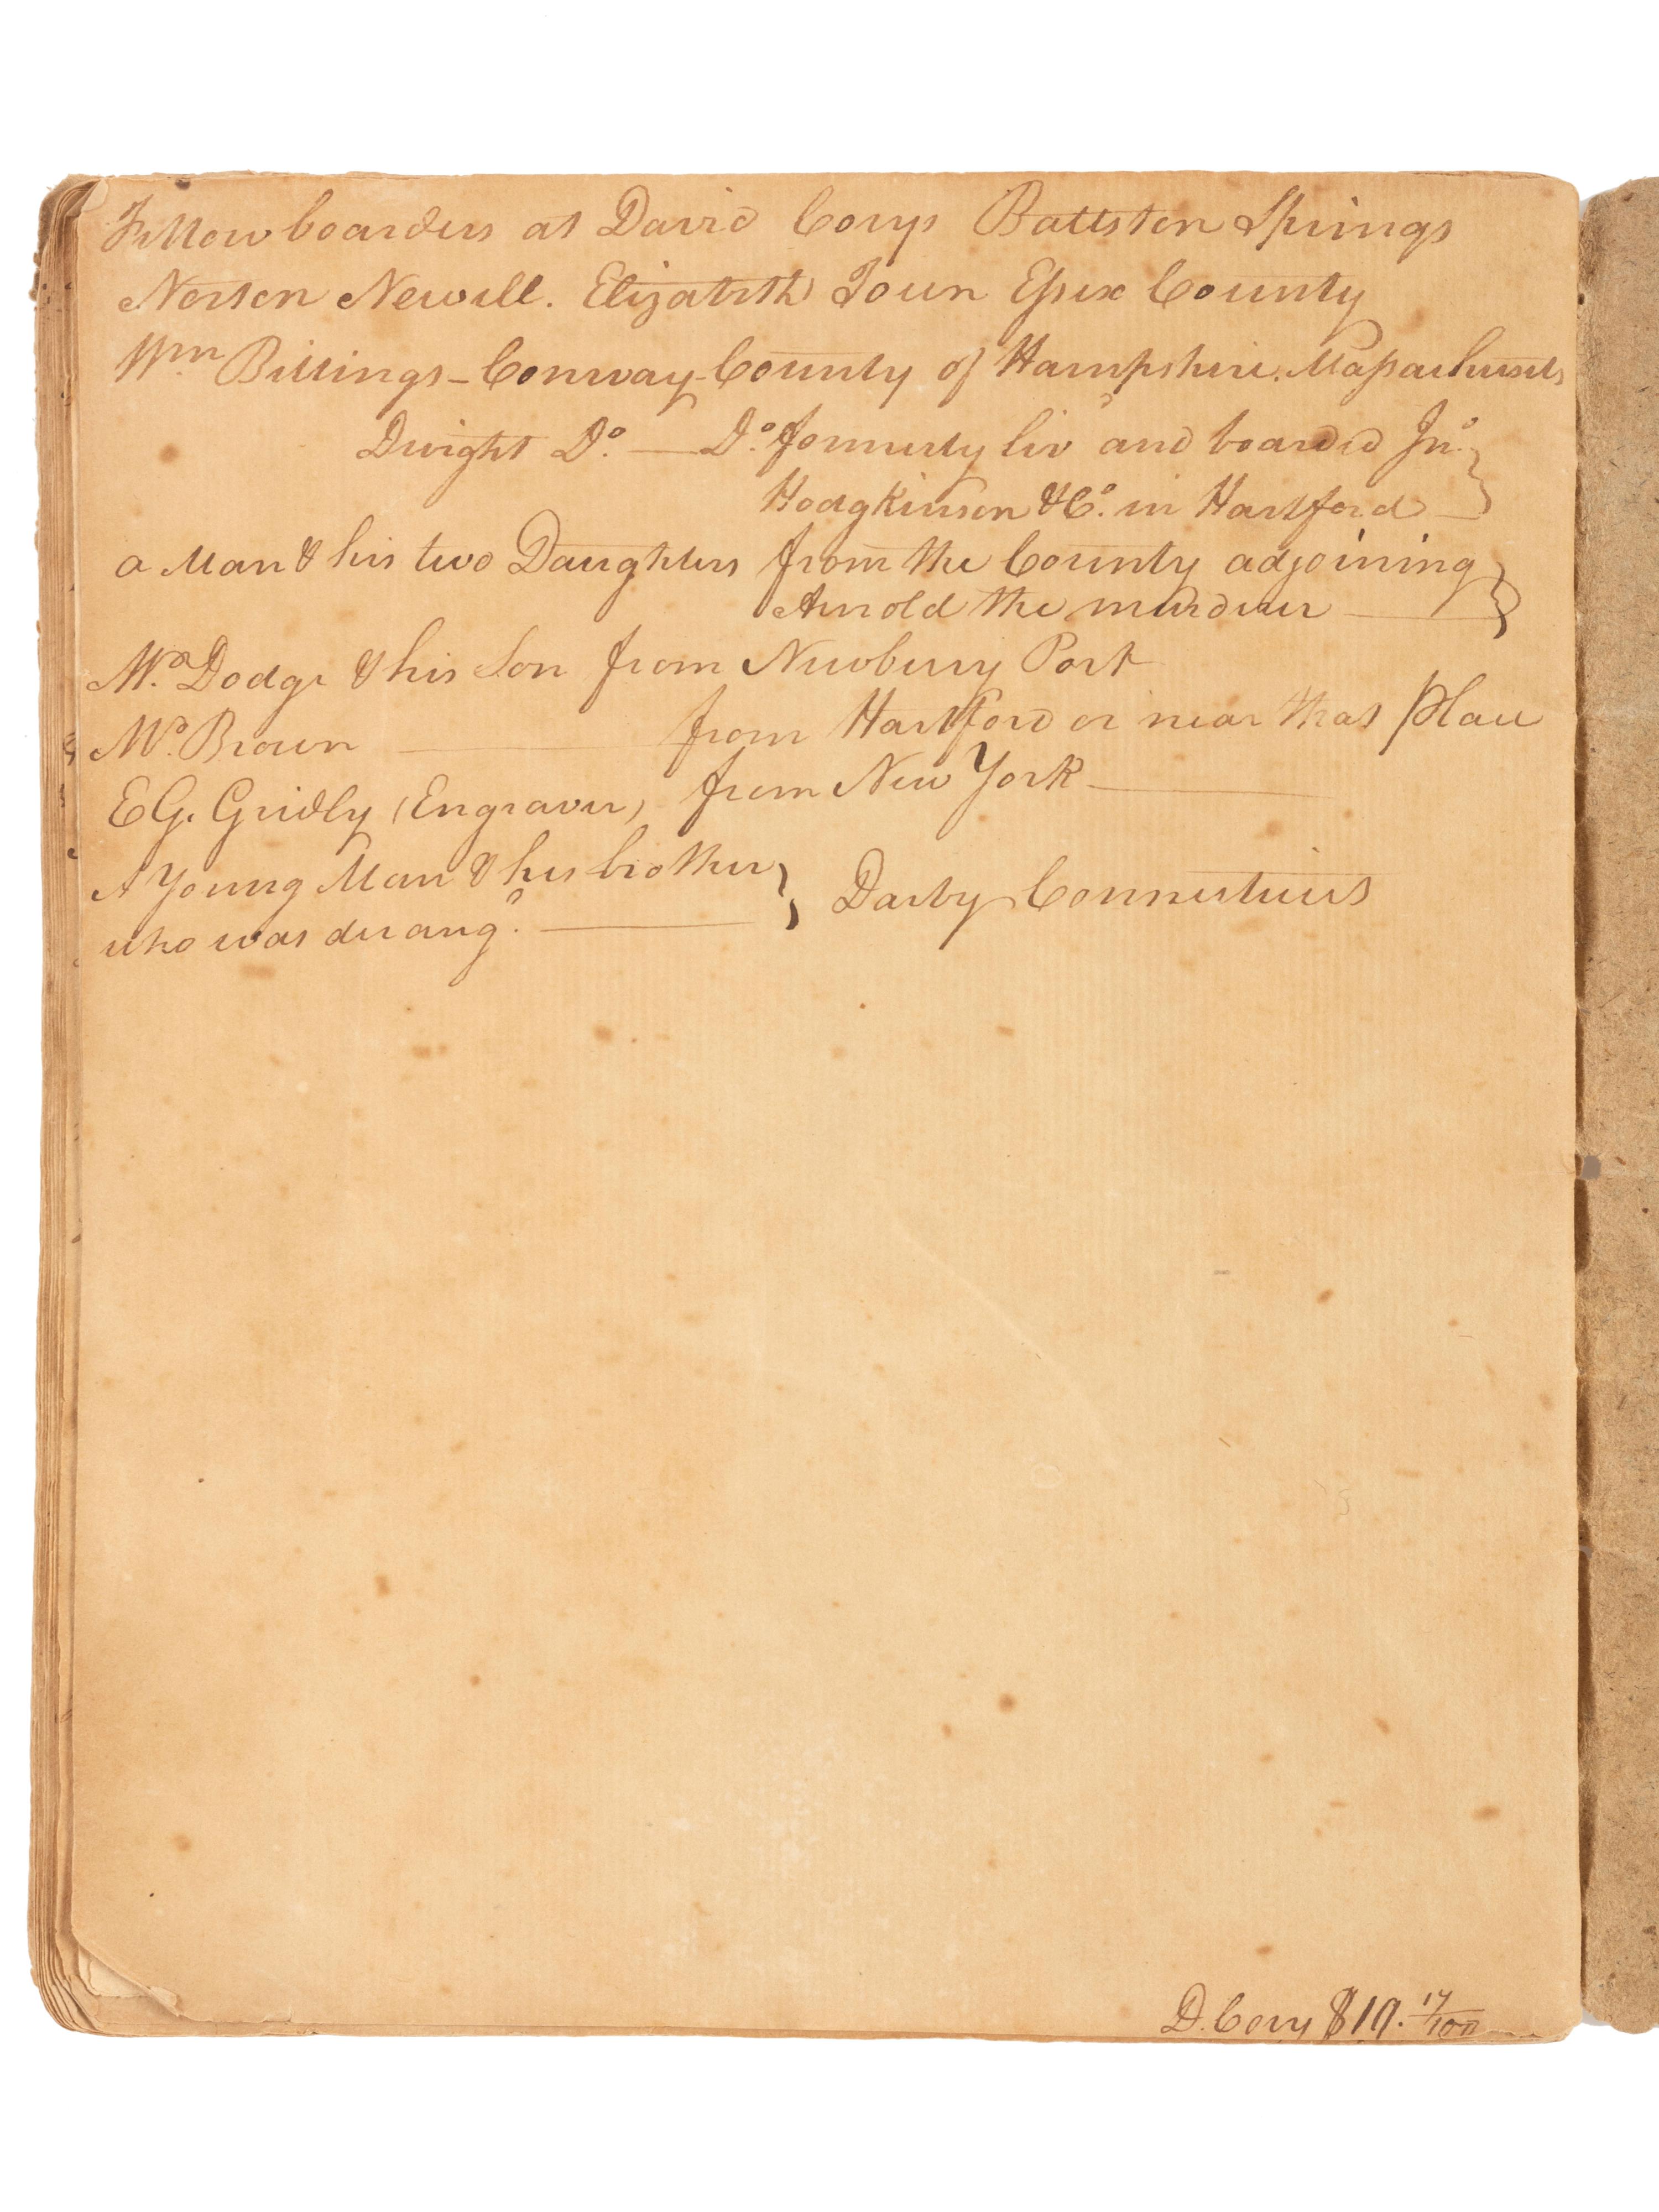 Fellow boarders at David Corys Ballston Springs
Norton Newell. Elizabeth Town Essex County
Wm Billings - Conway - County of Hampshire. Massachusets
Dwight Do. — Do. formerly liv'd and boarded Jno.
Hodgkinson & Co. in Hartford —
a Man & his two Daughters from the County adjoining
Arnold the murderer —
Mr. Dodge & his Son from Newbury Port
Mr. Brown — from Hartford or near that place
E G. Gridly (Engraver) from New York —
A Young Man & his brother
who was derang'd. — } Darby Connecticut
D. Cory $19. 17/100